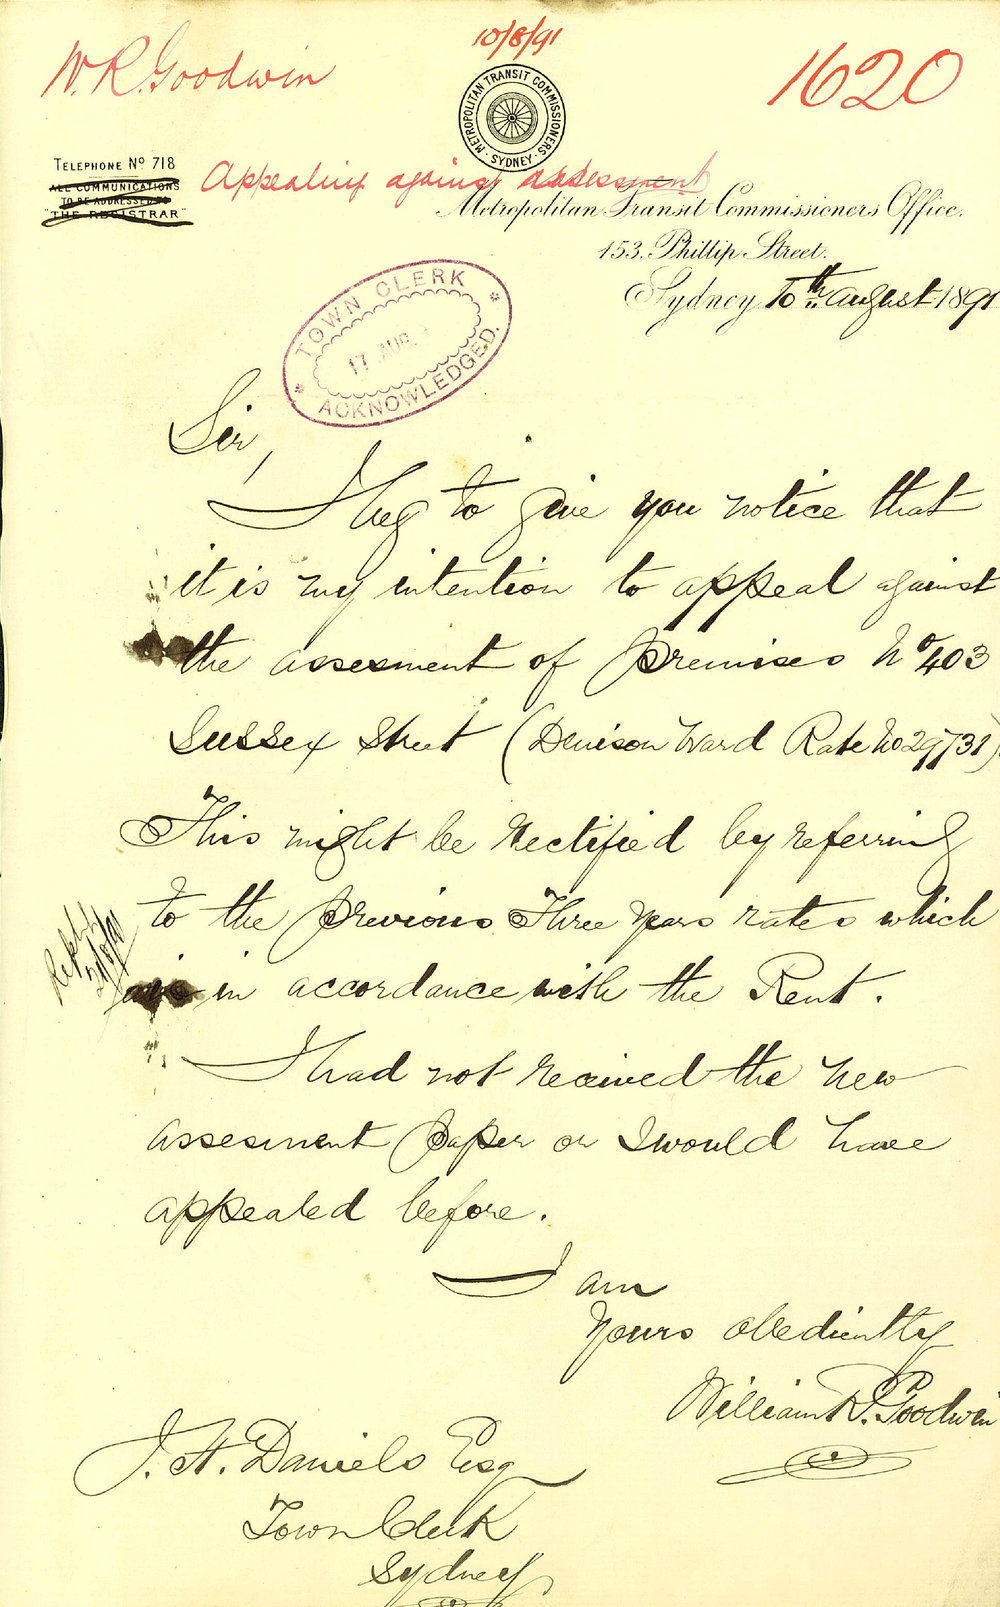 10/8/91
W. R. Goodwin
1620
METROPOLITAN TRANSIT COMMISSIONERS
SYDNEY
TELEPHONE No 718
ALL COMMUNICATIONS
TO BE ADDRESSED TO
"THE REGISTRAR"
Appealing against assessment
Metropolitan Transit Commissioners Office.
153. Phillip Street.
Sydney 10th August 1891
TOWN CLERK
17 AUG
ACKNOWLEDGED.
Sir,
I beg to give you notice that
it is my intention to appeal against
the assesment of premises No 403
Sussex Street (Denison Ward Rate No 29731)
This might be rectified by referring
to the previous Three years rates which
are in accordance with the Rent.
I had not received the new
assesment paper or I would have
appealed before.
I am
Yours obediently
William R. Goodwin
J. H. Daniels Esq
Town Clerk
Sydney